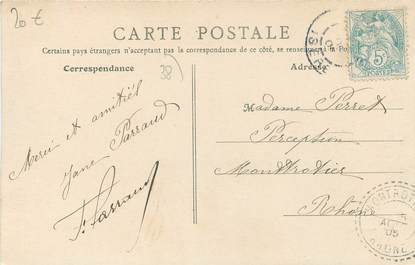 20 €
CARTE POSTALE
Certains pays étrangers n'acceptant pas la correspondance de ce côté, se renseigner à la Po
Correspondance
38
Adresse
ISÈRE
5
POSTES
Merci et amitiés
Jane Parraud
Madame Perret
Perception
Montrotier
Rhône
MONTROTIER
05
RHÔNE